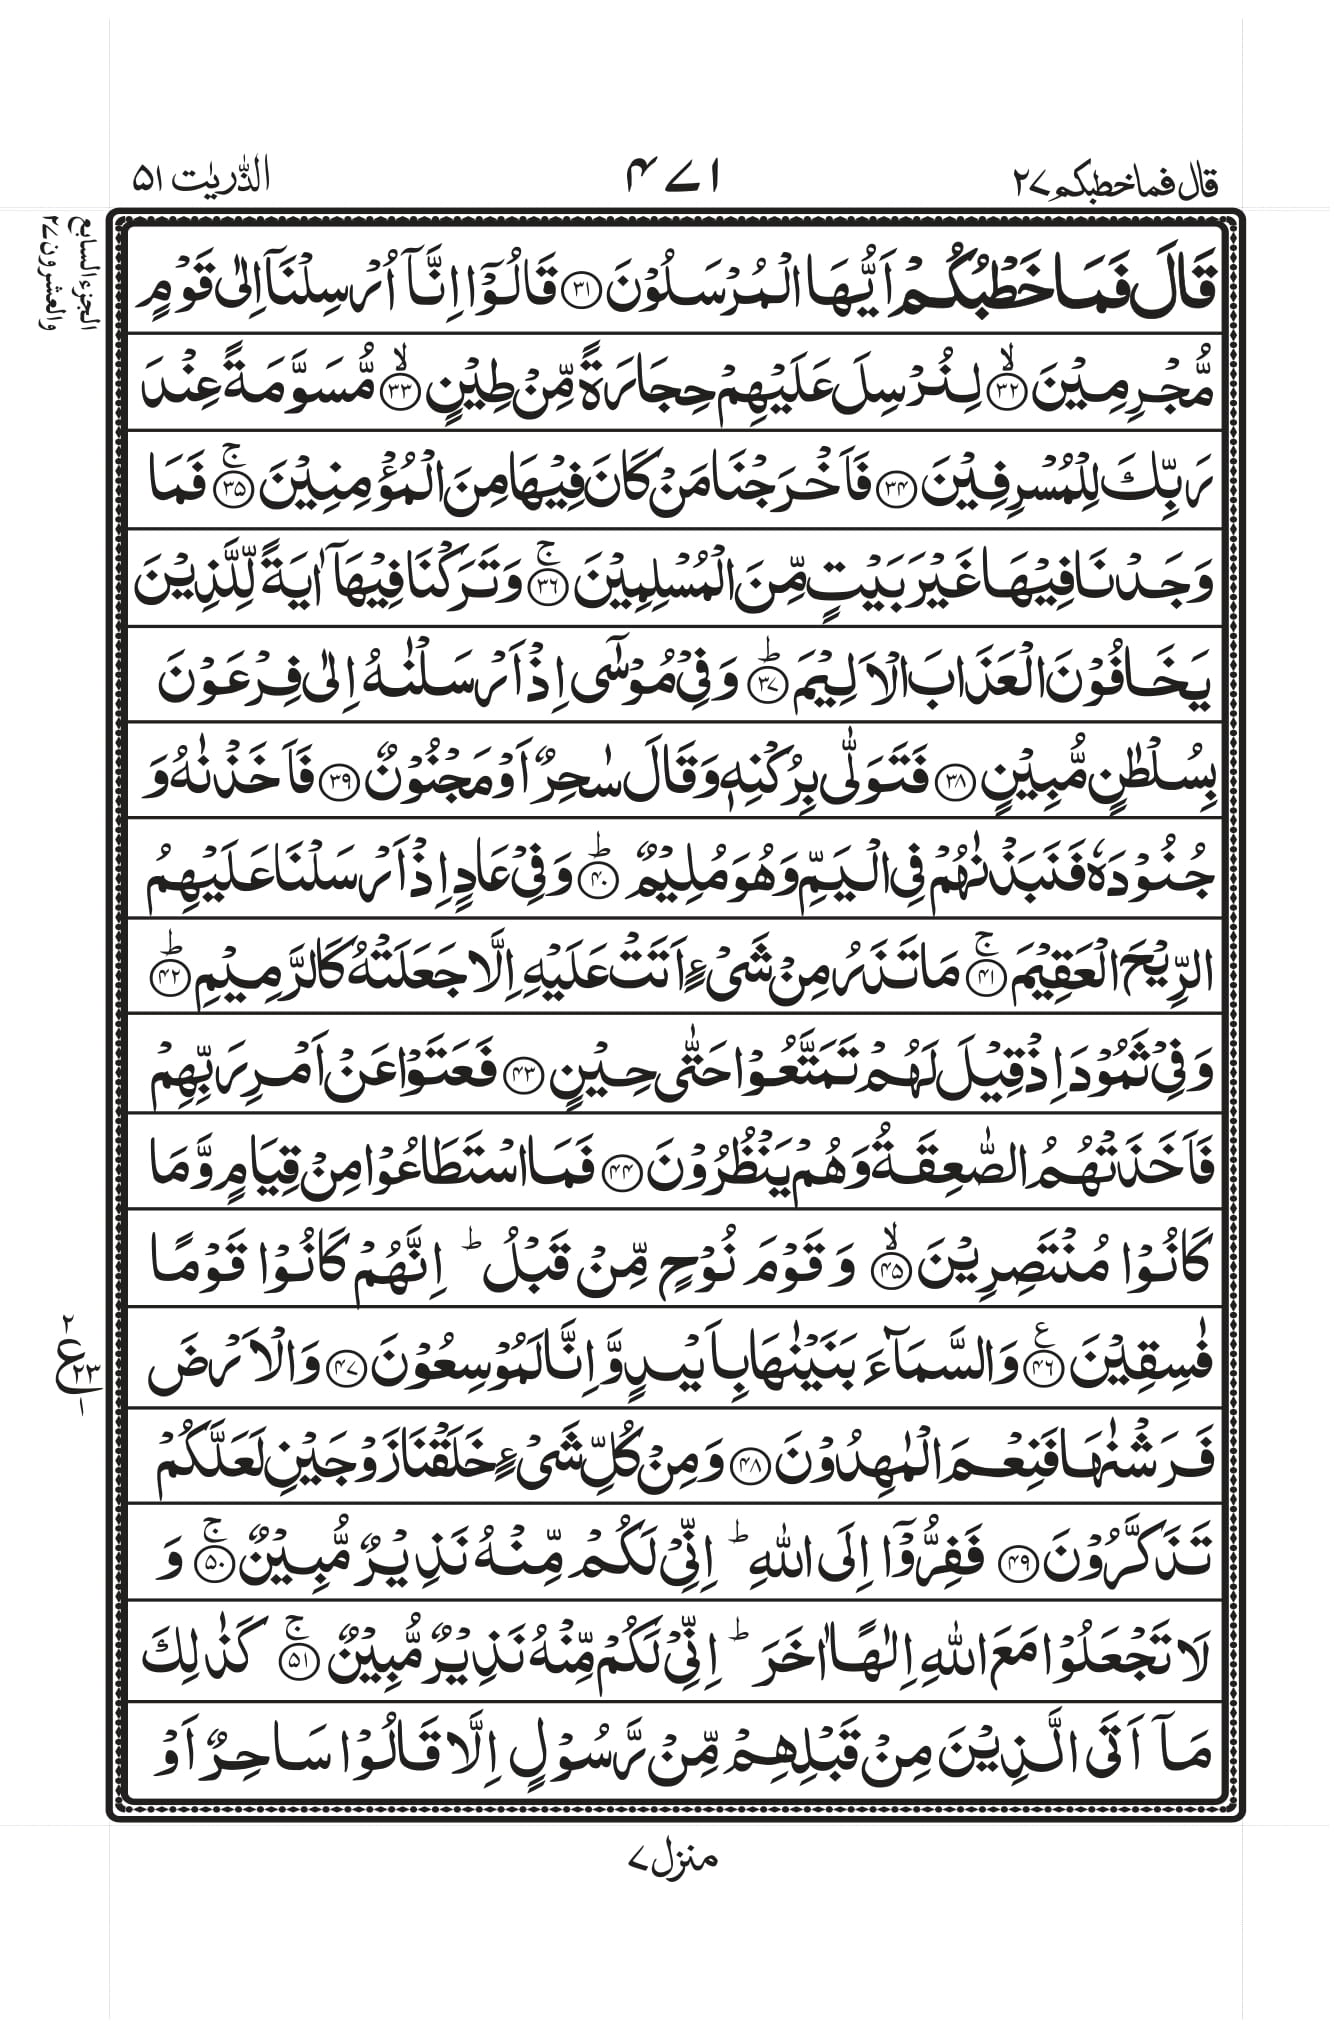 قال فما خطبکم ۲۷
۴۷۱
الذّٰریٰت ۵۱
الجزء السابع
والعشرون ۲۷
قَالَ فَمَا خَطْبُكُمْ اَيُّهَا الْمُرْسَلُوْنَ ﴿۳۱﴾ قَالُوْٓا اِنَّآ اُرْسِلْنَآ اِلٰى قَوْمٍ
مُّجْرِمِيْنَ ۙ﴿۳۲﴾ لِنُرْسِلَ عَلَيْهِمْ حِجَارَةً مِّنْ طِيْنٍ ۙ﴿۳۳﴾ مُّسَوَّمَةً عِنْدَ
رَبِّكَ لِلْمُسْرِفِيْنَ ﴿۳۴﴾ فَاَخْرَجْنَا مَنْ كَانَ فِيْهَا مِنَ الْمُؤْمِنِيْنَ ۚ﴿۳۵﴾ فَمَا
وَجَدْنَا فِيْهَا غَيْرَ بَيْتٍ مِّنَ الْمُسْلِمِيْنَ ۚ﴿۳۶﴾ وَتَرَكْنَا فِيْهَآ اٰيَةً لِّلَّذِيْنَ
يَخَافُوْنَ الْعَذَابَ الْاَلِيْمَ ؕ﴿۳۷﴾ وَفِيْ مُوْسٰٓى اِذْ اَرْسَلْنٰهُ اِلٰى فِرْعَوْنَ
بِسُلْطٰنٍ مُّبِيْنٍ ﴿۳۸﴾ فَتَوَلّٰى بِرُكْنِهٖ وَقَالَ سٰحِرٌ اَوْ مَجْنُوْنٌ ﴿۳۹﴾ فَاَخَذْنٰهُ وَ
جُنُوْدَهٗ فَنَبَذْنٰهُمْ فِي الْيَمِّ وَهُوَ مُلِيْمٌ ؕ﴿۴۰﴾ وَفِيْ عَادٍ اِذْ اَرْسَلْنَا عَلَيْهِمُ
الرِّيْحَ الْعَقِيْمَ ۚ﴿۴۱﴾ مَا تَذَرُ مِنْ شَيْءٍ اَتَتْ عَلَيْهِ اِلَّا جَعَلَتْهُ كَالرَّمِيْمِ ؕ﴿۴۲﴾
وَفِيْ ثَمُوْدَ اِذْ قِيْلَ لَهُمْ تَمَتَّعُوْا حَتّٰى حِيْنٍ ﴿۴۳﴾ فَعَتَوْا عَنْ اَمْرِ رَبِّهِمْ
فَاَخَذَتْهُمُ الصّٰعِقَةُ وَهُمْ يَنْظُرُوْنَ ﴿۴۴﴾ فَمَا اسْتَطَاعُوْا مِنْ قِيَامٍ وَّمَا
كَانُوْا مُنْتَصِرِيْنَ ۙ﴿۴۵﴾ وَقَوْمَ نُوْحٍ مِّنْ قَبْلُ ؕ اِنَّهُمْ كَانُوْا قَوْمًا
فٰسِقِيْنَ ﴿۴۶﴾ ع وَالسَّمَآءَ بَنَيْنٰهَا بِاَيْىدٍ وَّاِنَّا لَمُوْسِعُوْنَ ﴿۴۷﴾ وَالْاَرْضَ
۲
ع ۲۳
۱
فَرَشْنٰهَا فَنِعْمَ الْمٰهِدُوْنَ ﴿۴۸﴾ وَمِنْ كُلِّ شَيْءٍ خَلَقْنَا زَوْجَيْنِ لَعَلَّكُمْ
تَذَكَّرُوْنَ ﴿۴۹﴾ فَفِرُّوْٓا اِلَى اللّٰهِ ؕ اِنِّيْ لَكُمْ مِّنْهُ نَذِيْرٌ مُّبِيْنٌ ۚ﴿۵۰﴾ وَ
لَا تَجْعَلُوْا مَعَ اللّٰهِ اِلٰهًا اٰخَرَ ؕ اِنِّيْ لَكُمْ مِّنْهُ نَذِيْرٌ مُّبِيْنٌ ۚ﴿۵۱﴾ كَذٰلِكَ
مَآ اَتَى الَّذِيْنَ مِنْ قَبْلِهِمْ مِّنْ رَّسُوْلٍ اِلَّا قَالُوْا سَاحِرٌ اَوْ
منزل ۷